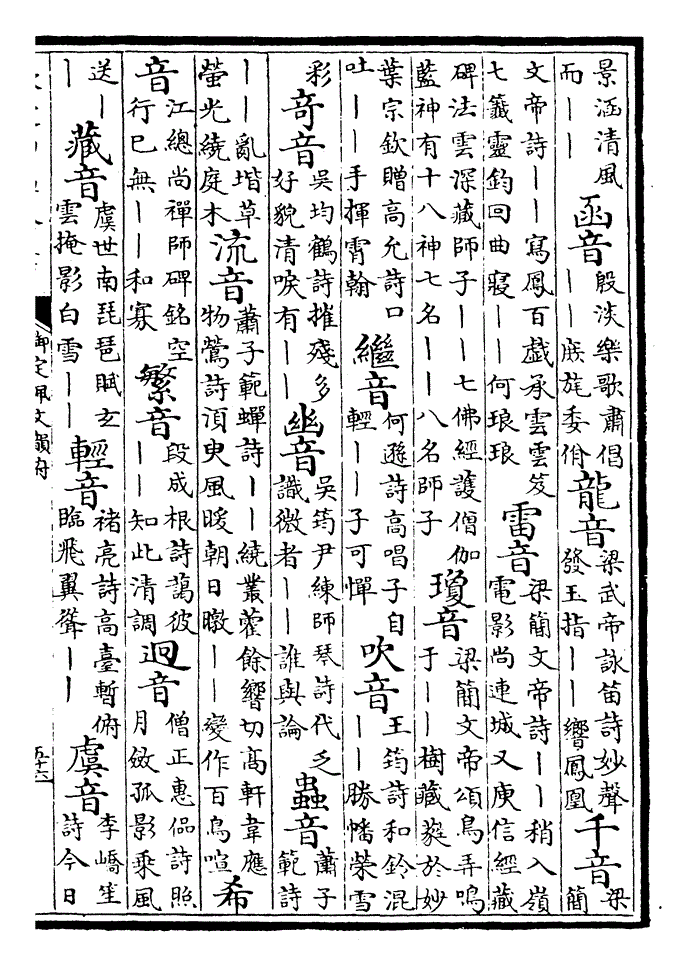 景涵清風而丨丨 函音 殷淡樂歌肅倡丨丨旐旄委佾 龍音 梁武帝詠笛詩妙聲發玉指丨丨響鳳凰 千音 梁簡
文帝詩丨丨寫鳳百戯承雲雲笈七籤靈鈞回曲寢丨丨何琅琅 雷音 梁簡文帝詩丨丨稍入嶺電影尚連城又庾信經藏
碑法雲深藏師子丨丨七佛經護僧伽藍神有十八神七名丨丨八名師子 瓊音 梁簡文帝頌鳥弄鳴于丨丨樹藏蕤於妙
葉宗欽贈高允詩口吐丨丨手揮霄翰 繼音 何遜詩高唱子自輕丨丨子可憚 吹音 王筠詩和鈴混丨丨勝幡榮雪
彩 奇音 吳均鶴詩摧殘多好貌清唳有丨丨 幽音 吳筠尹練師琴詩代乏識微者丨丨誰與論 蟲音 蕭子範詩
丨丨亂堦草螢光繞庭木 流音 蕭子範蟬詩丨丨繞叢藿餘響切高軒韋應物鶯詩須臾風暖朝日暾丨丨變作百鳥喧 希
音 江總尚禪師碑銘空行已無丨丨和寡 繁音 段成根詩藹彼丨丨知此清調 迥音 僧正惠偘詩照月斂孤影乘風
送丨丨 藏音 虞世南琵琶賦玄雲掩影白雪丨丨 輕音 褚亮詩高臺暫俯臨飛翼聳丨丨 虞音 李嶠笙詩今日
御定佩文韻府
五十六